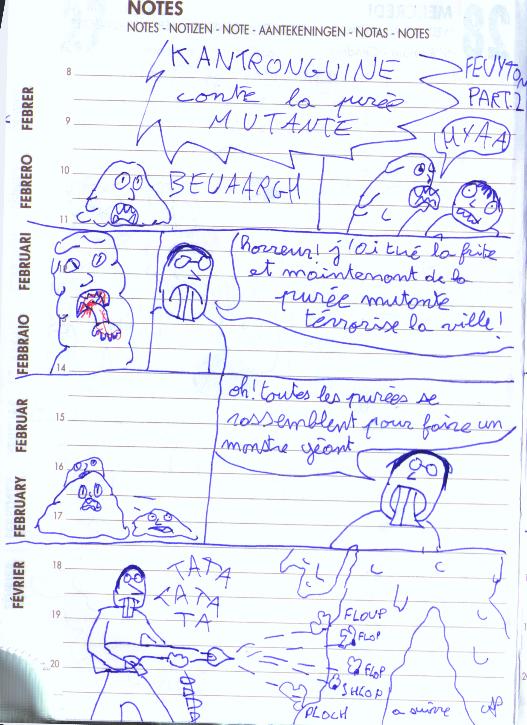 NOTES
NOTES - NOTIZEN - NOTE - AANTEKENINGEN - NOTAS - NOTES
KANTRONGUINE
contre la purée
MUTANTE
FEUYTON
PART. 2
MYAA
BEUAARGH
horreur! j'ai tué la frite
et maintenant de la
purée mutante
térrorise la ville!
oh! toutes les purées se
rassemblent pour faire un
monstre géant
TATA
TATA
TA
FLOUP
FLOP
FLOP
SHLOP
PLOCH
a suivre
8
9
10
11
14
15
16
17
18
19
20
FEBRER
FEBRERO
FEBRUARI
FEBBRAIO
FEBRUAR
FEBRUARY
FÉVRIER